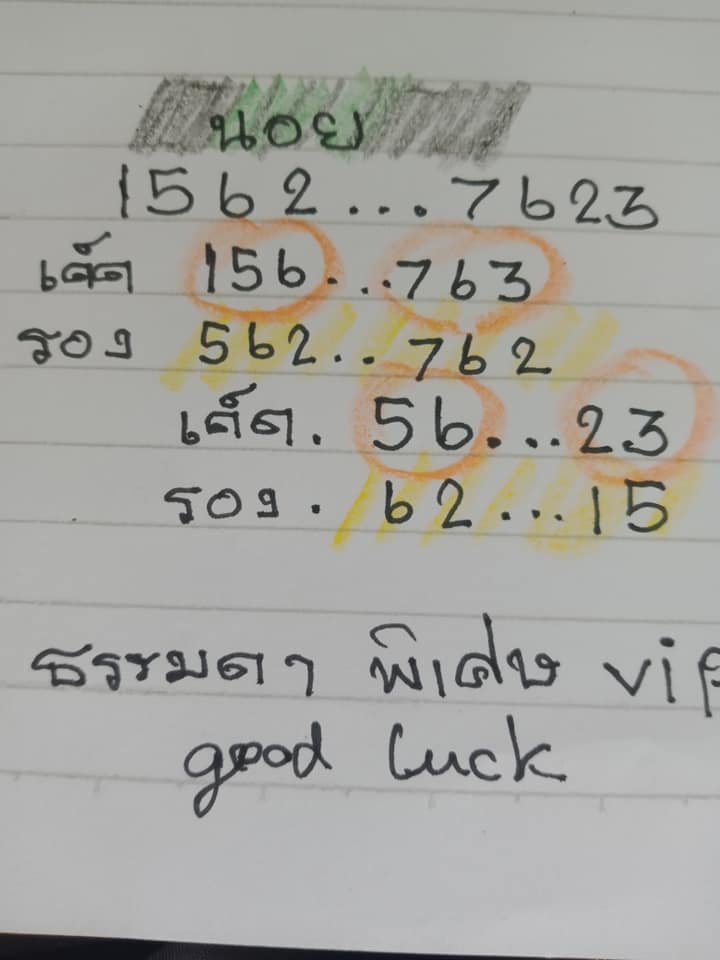 นอย
1562...7623
เด็ด 156...763
รอง 562..762
เด็ด. 56...23
รอง. 62...15
ธรรมดา พิเศษ vip
good luck